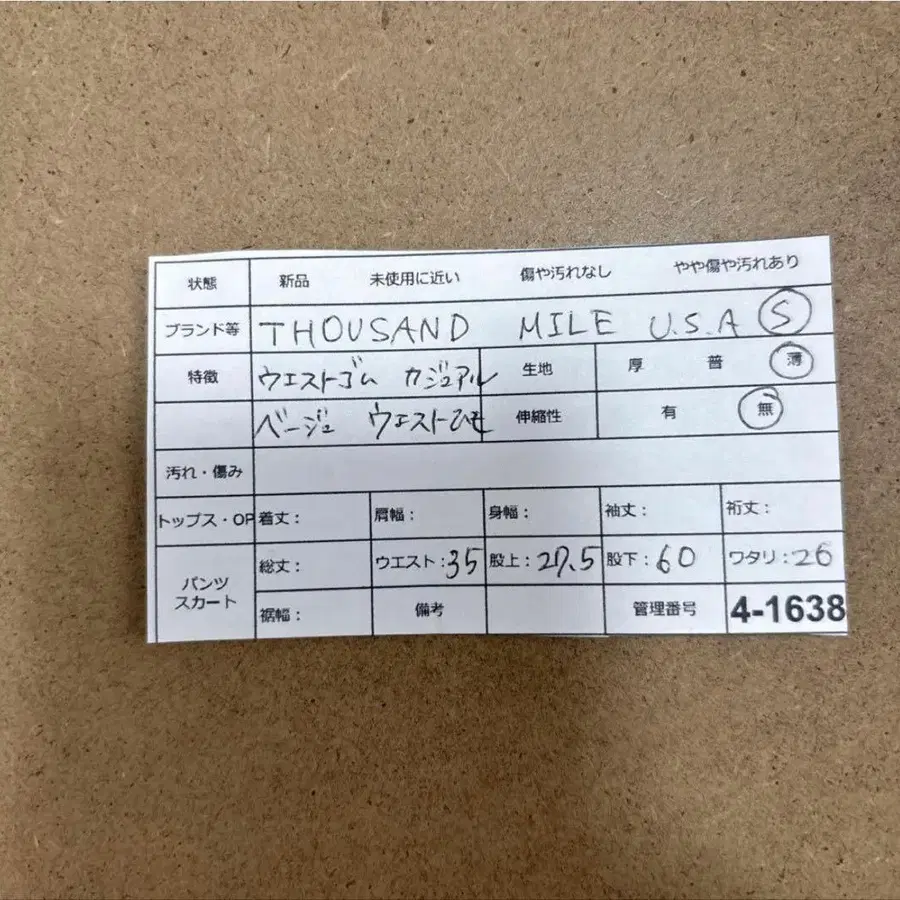 状態 新品 未使用に近い 傷や汚れなし やや傷や汚れあり
ブランド等 THOUSAND MILE U.S.A S
特徴 ウエストゴム カジュアル 生地 厚 普 薄
ベージュ ウエストひも 伸縮性 有 無
汚れ・傷み
トップス・OP 着丈: 肩幅: 身幅: 袖丈: 裄丈:
パンツ スカート 総丈: ウエスト:35 股上:27.5 股下:60 ワタリ:26
裾幅: 備考 管理番号 4-1638